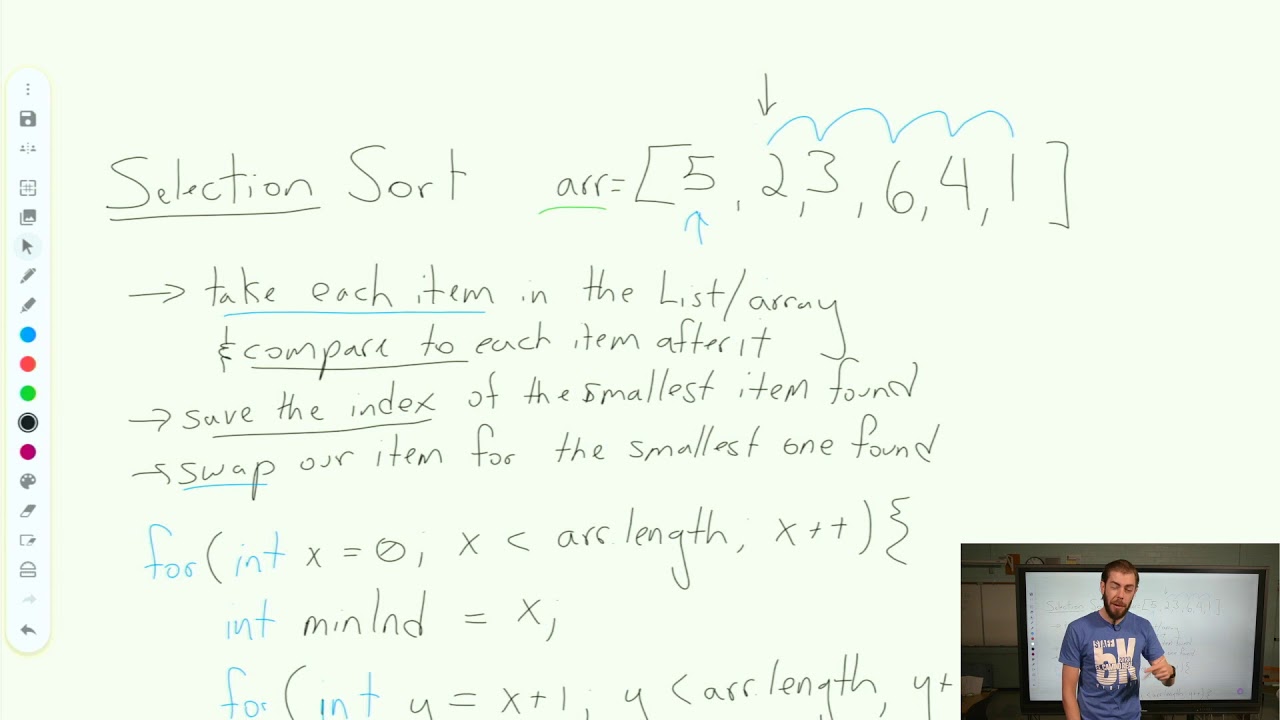 Selection Sort arr=[5,2,3,6,4,1]
→ take each item in the List/array
& compare to each item after it
→ save the index of the smallest item found
→ swap our item for the smallest one found
for(int x = 0; x < arr.length; x++){
int minInd = x;
for(int y = x+1; y < arr.length, y+
STAFF
5K